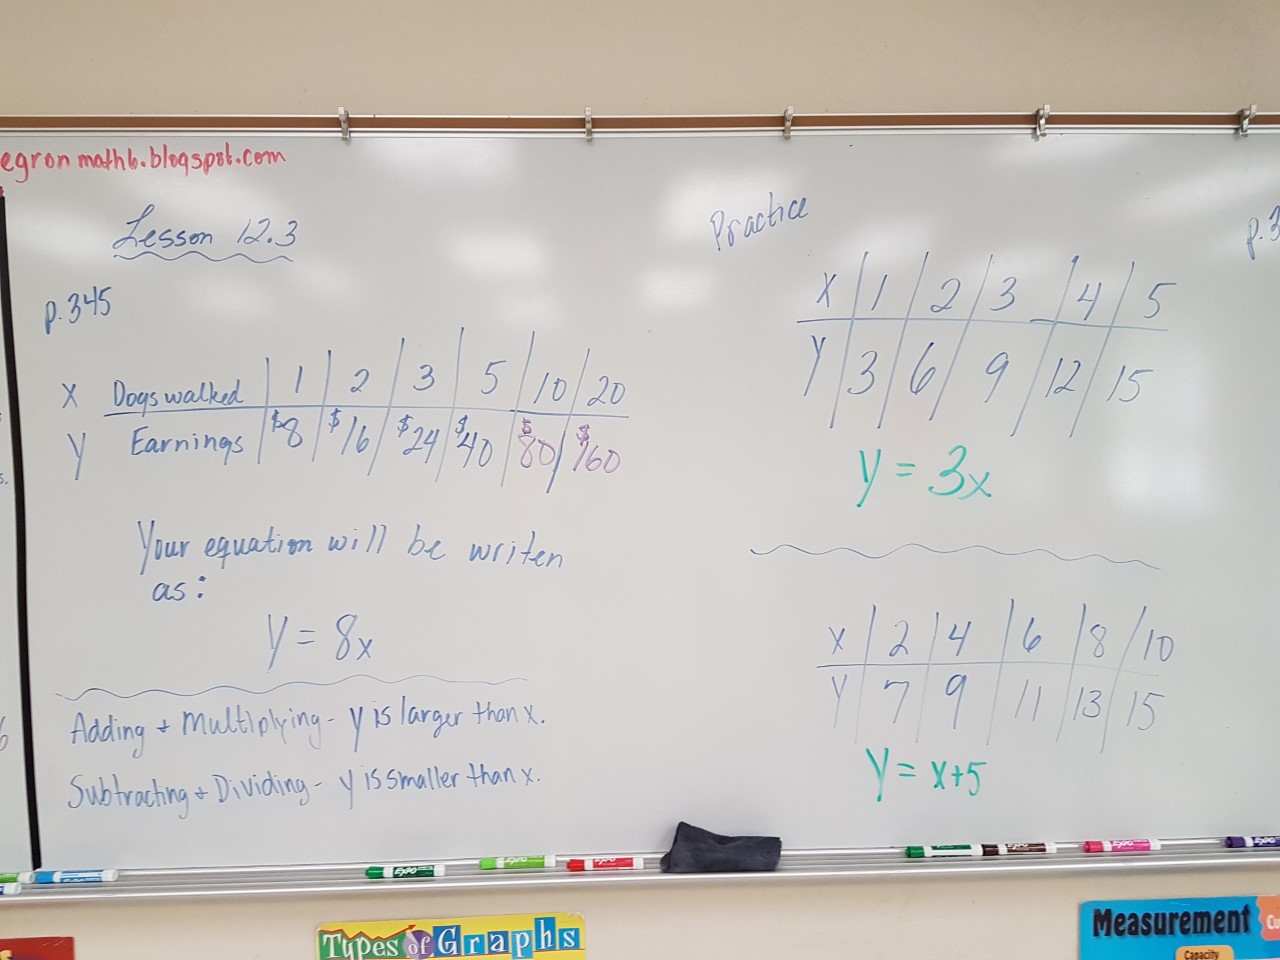 egronmath6.blogspot.com
Lesson 12.3
p.345
X Dogs walked 1 2 3 5 10 20
Y Earnings $8 $16 $24 $40 $80 $160
Your equation will be writen
as:
y = 8x
Adding + Multiplying - y is larger than x.
Subtracting + Dividing - y is smaller than x.
Practice
X 1 2 3 4 5
Y 3 6 9 12 15
y = 3x
X 2 4 6 8 10
Y 7 9 11 13 15
y = x+5
p.3
EXPO
EXPO
EXPO
EXPO
Types of Graphs
Measurement
Capacity